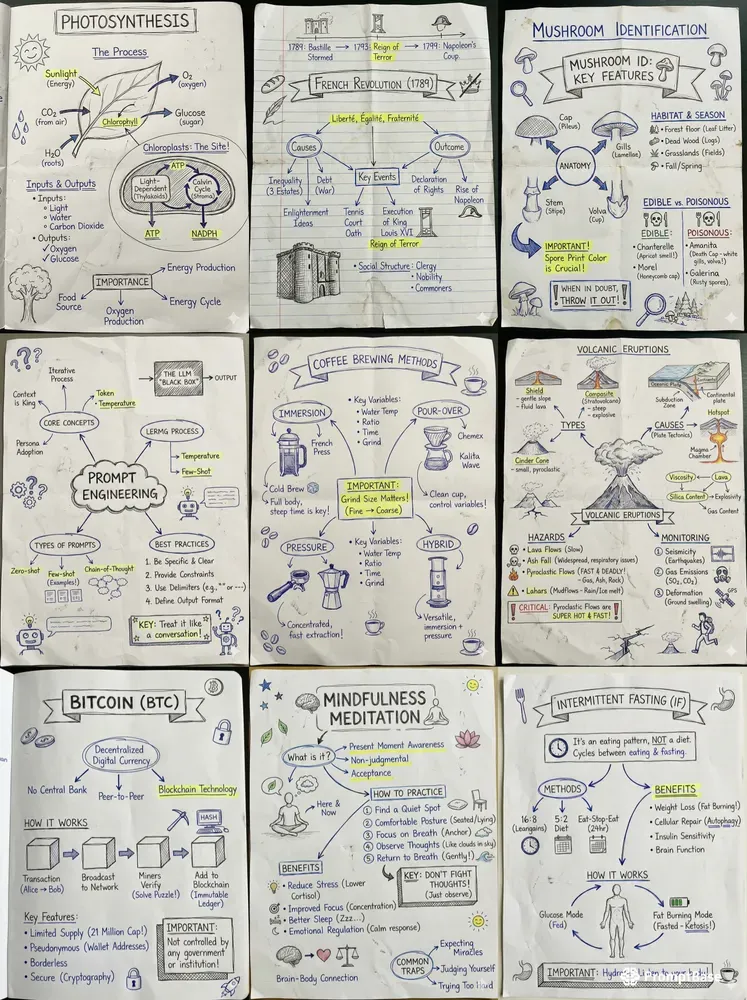 PHOTOSYNTHESIS
The Process
Sunlight
(Energy)
O₂
(oxygen)
CO₂
(from air)
Chlorophyll
Glucose
(sugar)
H₂O
(roots)
Chloroplasts: The Site!
ATP
Light-
Dependent
(Thylakoids)
Calvin
Cycle
(Stroma)
ATP
NADPH
Inputs & Outputs
• Inputs:
Light
Water
Carbon Dioxide
• Outputs:
Oxygen
Glucose
IMPORTANCE
Energy Production
Food
Source
Oxygen
Production
Energy Cycle
1789: Bastille
Stormed
1793: Reign of
Terror
1799: Napoleon's
Coup.
FRENCH REVOLUTION (1789)
Liberté, Égalité, Fraternité
Causes
Outcome
Key Events
Inequality
(3 Estates)
Debt
(War)
Declaration
of Rights
Rise of
Napoleon
Enlightenment
Ideas
Tennis
Court
Oath
Execution
of King
Louis XVI
Reign of Terror
• Social Structure: Clergy
• Nobility
• Commoners
MUSHROOM IDENTIFICATION
MUSHROOM ID:
KEY FEATURES
Cap
(Pileus)
Gills
(Lamellae)
ANATOMY
Stem
(Stipe)
Volva
(Cup)
HABITAT & SEASON
Forest floor (Leaf Litter)
Dead Wood (Logs)
Grasslands (Fields)
Fall/Spring
IMPORTANT!
Spore Print Color
is Crucial!
WHEN IN DOUBT,
THROW IT OUT!
EDIBLE vs. POISONOUS
EDIBLE:
• Chanterelle
(Apricot smell!)
• Morel
(Honeycomb cap)
POISONOUS:
• Amanita
(Death Cap - white
gills, volva!)
• Galerina
(Rusty spores)
Iterative
Process
Context
is King
Token
• Temperature
CORE CONCEPTS
Persona
Adoption
THE LLM
"BLACK BOX"
OUTPUT
LERMG PROCESS
Temperature
Few-Shot
PROMPT
ENGINEERING
TYPES OF PROMPTS
Zero-shot
Few-shot
(Examples!)
Chain-of-Thought
BEST PRACTICES
1. Be Specific & Clear
2. Provide Constraints
3. Use Delimiters (e.g., """ or ---)
4. Define Output Format
KEY: Treat it like
a conversation!
COFFEE BREWING METHODS
IMMERSION
French
Press
Cold Brew
Full body,
steep time is key!
• Key Variables:
• Water Temp
• Ratio
• Time
• Grind
POUR-OVER
Chemex
Kalita
Wave
Clean cup,
control variables!
IMPORTANT:
Grind Size Matters!
(Fine → Coarse)
PRESSURE
Concentrated,
fast extraction!
• Key Variables:
• Water Temp
• Ratio
• Time
• Grind
HYBRID
Versatile,
immersion +
pressure
VOLCANIC ERUPTIONS
Shield
- gentle slope
- fluid lava
Composite
(Stratovolcano)
- steep
- explosive
Subduction
Zone
Continental
plate
TYPES
CAUSES
(Plate Tectonics)
Hotspot
Magma
Chamber
Cinder Cone
- small, pyroclastic
Viscosity
Lava
Silica Content
Explosivity
Gas Content
VOLCANIC ERUPTIONS
HAZARDS
• Lava Flows (Slow)
• Ash Fall (Widespread, respiratory issues)
• Pyroclastic Flows (FAST & DEADLY!)
- Gas, Ash, Rock)
• Lahars (Mudflows - Rain/Ice melt)
CRITICAL: Pyroclastic Flows are
SUPER HOT & FAST!
MONITORING
1 Seismicity
(Earthquakes)
2 Gas Emissions
(SO₂, CO₂)
3 Deformation
(Ground swelling)
GPS
BITCOIN (BTC)
Decentralized
Digital Currency
No Central Bank
Peer-to-Peer
Blockchain Technology
HOW IT WORKS
HASH
Transaction
(Alice → Bob)
Broadcast
to Network
Miners
Verify
(Solve Puzzle!)
Add to
Blockchain
(Immutable
Ledger)
Key Features:
• Limited Supply (21 Million Cap!)
• Pseudonymous (Wallet Addresses)
• Borderless
• Secure (Cryptography)
IMPORTANT:
Not controlled by
any government
or institution!
MINDFULNESS
MEDITATION
What is it?
Present Moment Awareness
Non-judgmental
Acceptance
Here &
Now
HOW TO PRACTICE
1 Find a Quiet Spot
2 Comfortable Posture (Seated/Lying)
3 Focus on Breath (Anchor)
4 Observe Thoughts (Like clouds in sky)
5 Return to Breath (Gently!)
KEY: DON'T FIGHT
THOUGHTS!
(Just observe)
BENEFITS
• Reduce Stress (Lower
Cortisol)
Improved Focus (Concentration)
Better Sleep (Zzz...)
Emotional Regulation (Calm response)
Brain-Body Connection
COMMON
TRAPS
Expecting
Miracles
Judging Yourself
Trying Too Hard
INTERMITTENT FASTING (IF)
It's an eating pattern, NOT a diet.
Cycles between eating & fasting.
METHODS
16:8
(Leangains)
5:2
Diet
Eat-Stop-Eat
(24hr)
BENEFITS
• Weight Loss (Fat Burning!)
• Cellular Repair (Autophagy)
• Insulin Sensitivity
• Brain Function
HOW IT WORKS
Glucose Mode
(Fed)
Fat Burning Mode
(Fasted - Ketosis!)
IMPORTANT:
PromptBase